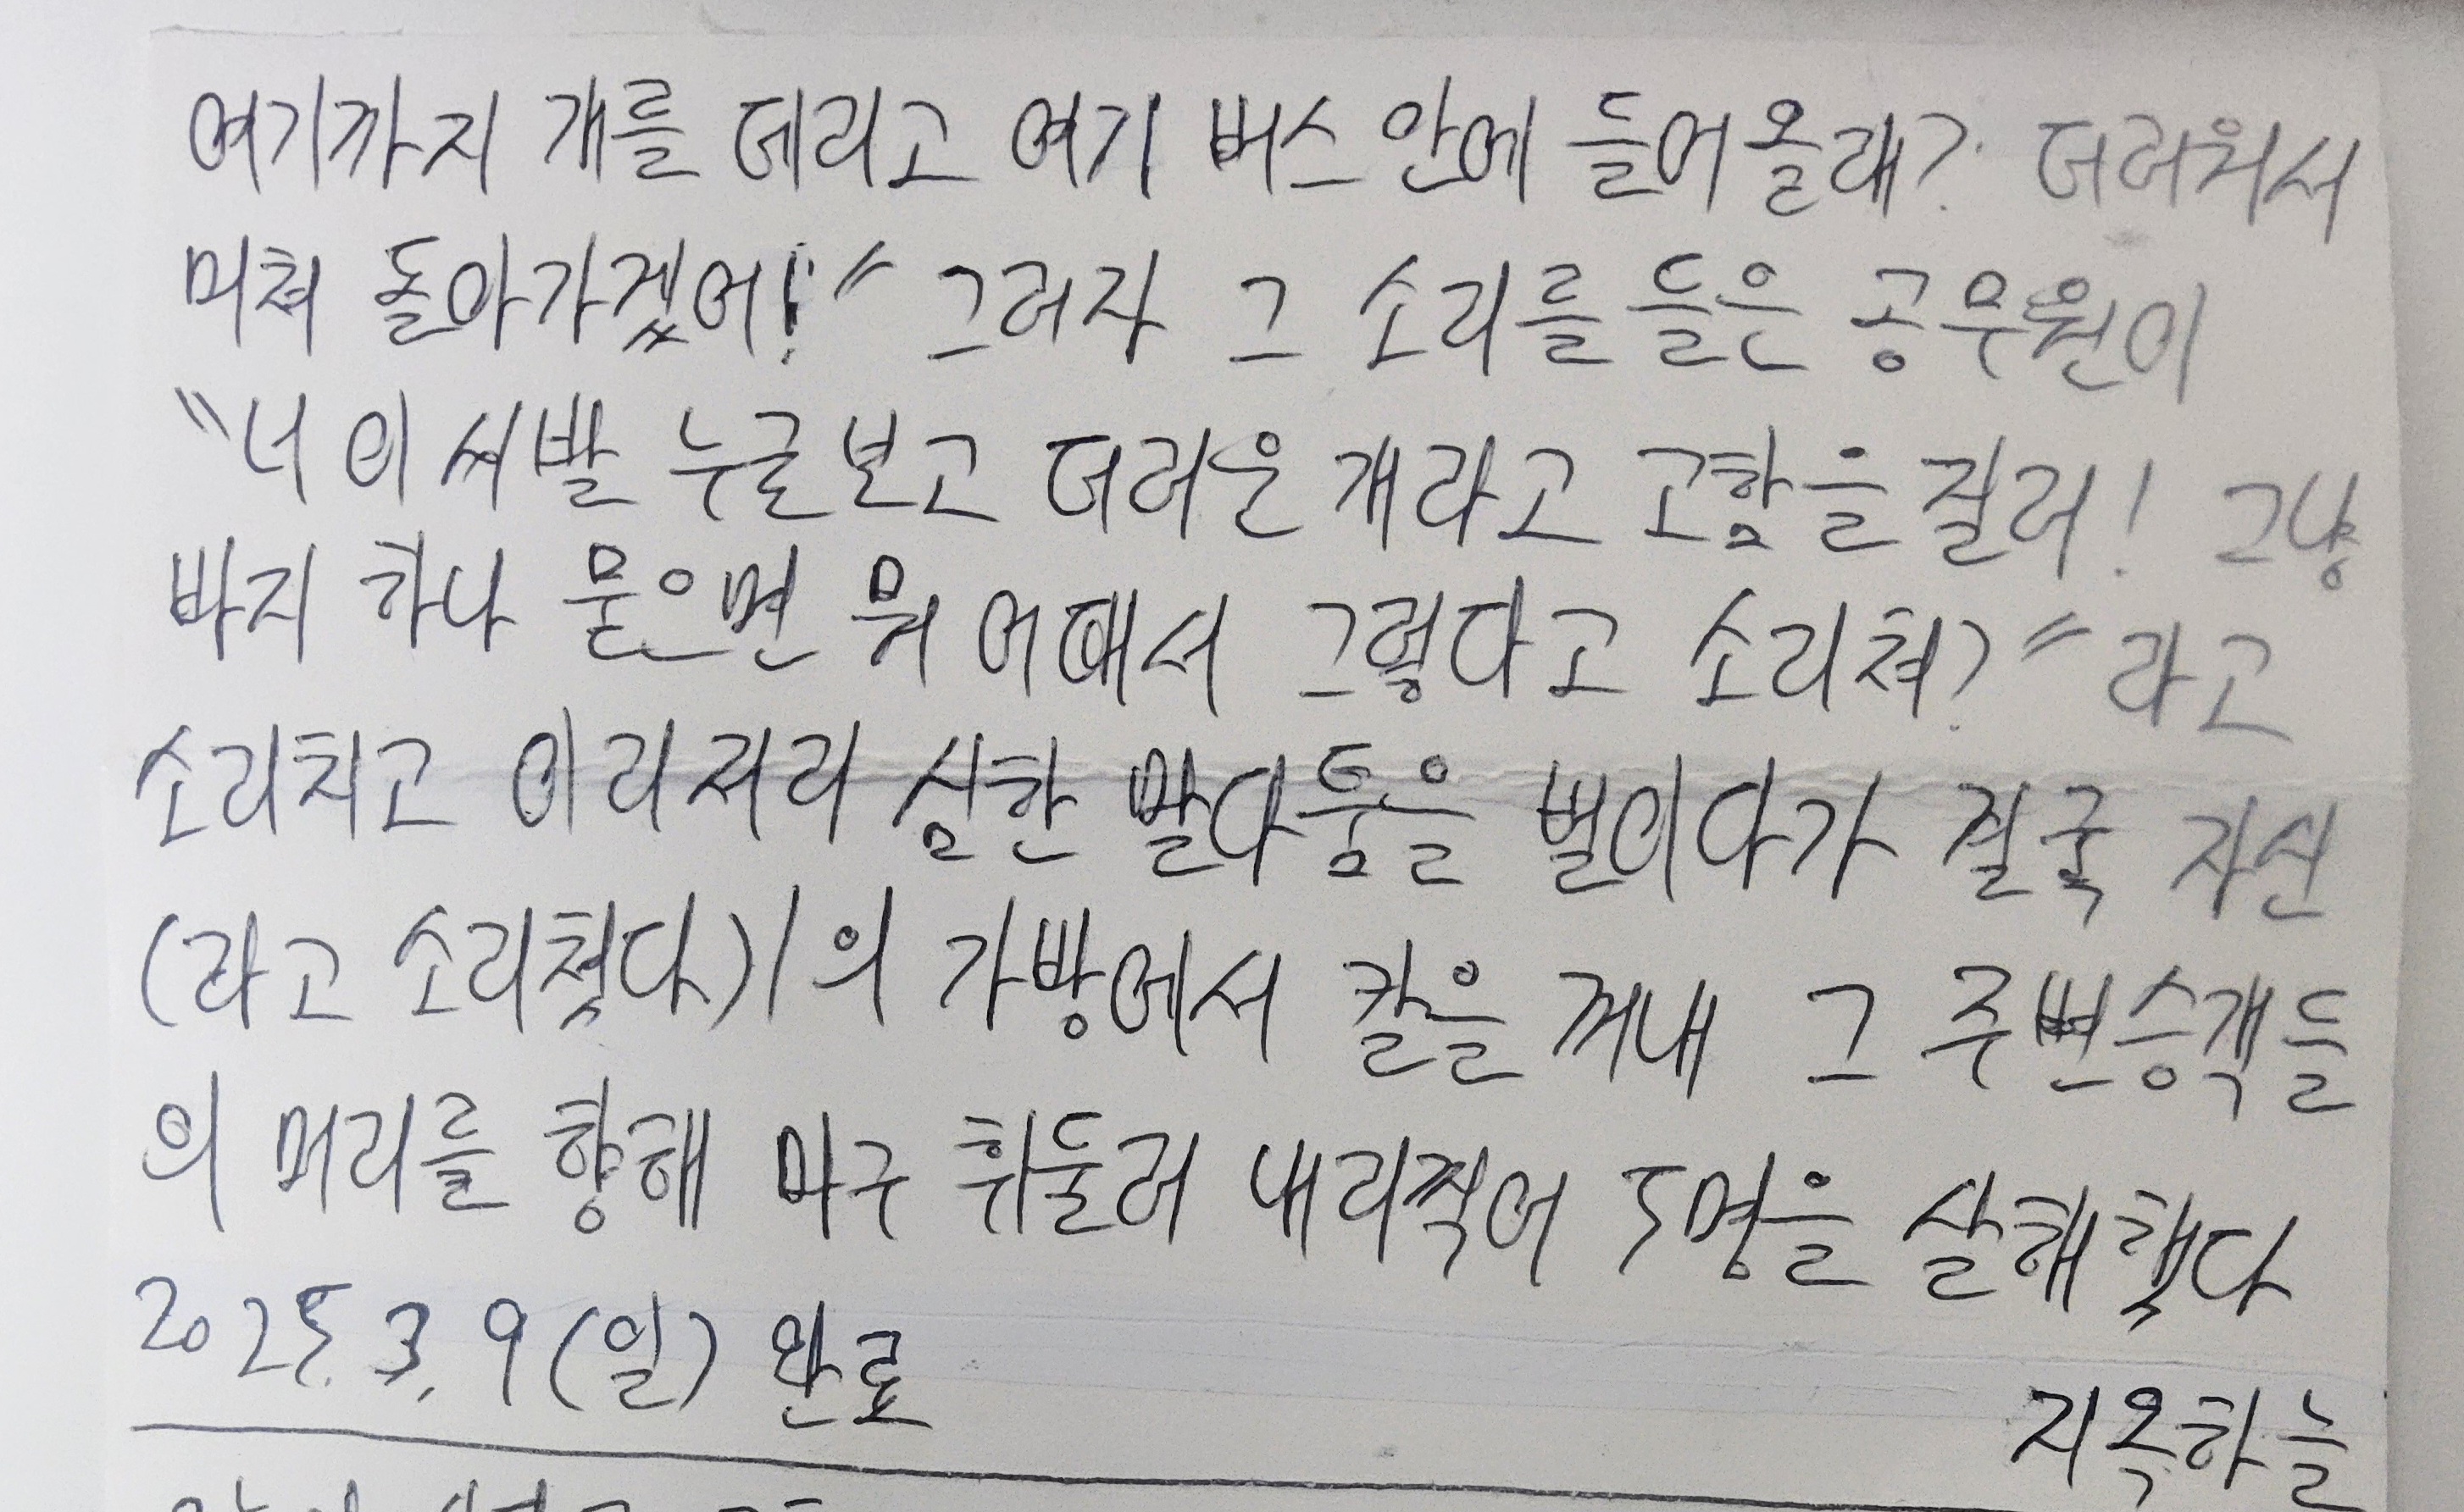 여기까지 개를 데리고 여기 버스 안에 들어올래? 더러워서
미쳐 돌아가겠어!" 그러자 그 소리를 들은 공무원이
"너 이 씨발 누굴 보고 더러운 개라고 고함을 질러! 그냥
바지 하나 묻으면 뭐 어때서 그렇다고 소리쳐?" 라고
소리치고 이리저리 심한 말다툼을 벌이다가 결국 자신
(라고 소리쳤다)/의 가방에서 칼을 꺼내 그 주변승객들
의 머리를 향해 마구 휘둘러 내리찍어 5명을 살해했다
2025. 3. 9 (일) 완료
지옥하늘